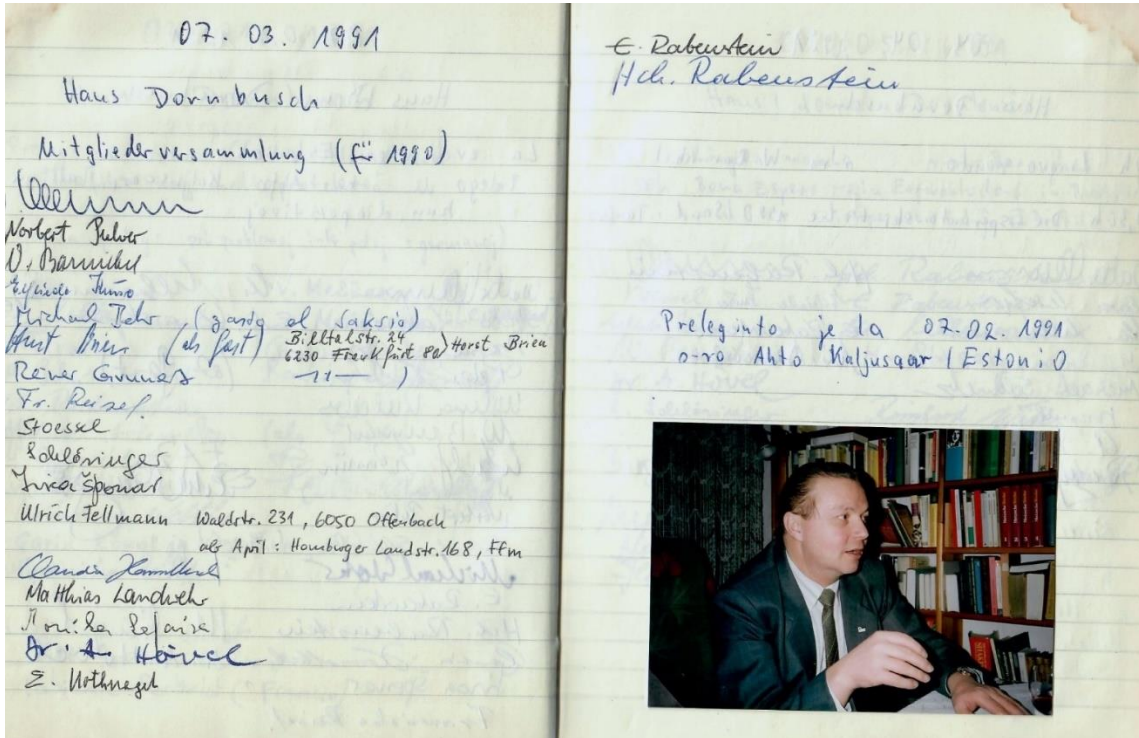 07. 03. 1991
Haus Dornbusch
Mitgliederversammlung (für 1990)
Norbert Pulver
V. Barnickel
Michael Behr (zasdo el Saksio)
Horst Brien (als Gast) Billtalstr. 24
6230 Frankfurt 80 ) Horst Brien
Reiner Grunert —11— )
Fr. Reisel
Stoessel
Schlösinger
Jirka Sponar
Ulrich Fellmann Waldstr. 231, 6050 Offenbach
ab April: Homburger Landstr. 168, Ffm
Claudia
Matthias Landwehr
Monika
Dr. A. Hövel
E. Nothnagel
E. Rabenstein
Hch. Rabenstein
Preleginto je la 07.02.1991
s-ro Ahto Kaljusaar / Estonio